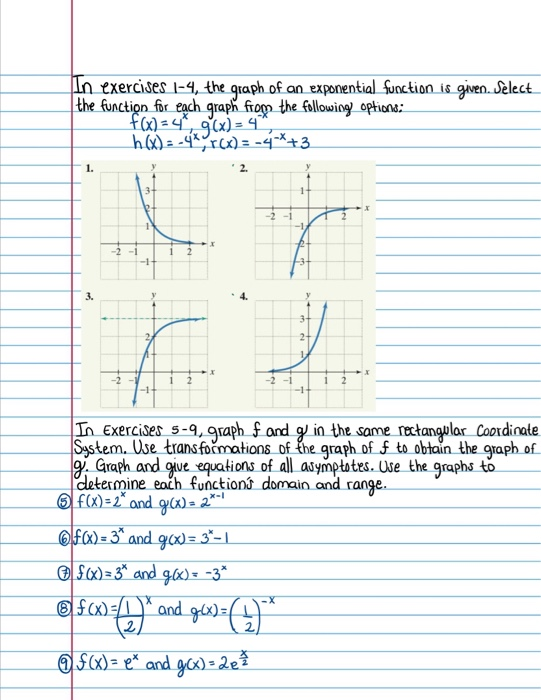 In exercises 1-4, the graph of an exponential function is given. Select
the function for each graph from the following options:
f(x) = 4ˣ, g(x) = 4⁻ˣ,
h(x) = -4⁻ˣ, r(x) = -4⁻ˣ+3
1. y 2. y
3 1
2 -2 -1 1 2 x
1 -1
-2 -1 1 2 x -2
-1 -3
3. y 4. y
3
2 2
1 1
-2 -1 1 2 x -2 -1 1 2 x
-1 -1
In Exercises 5-9, graph f and g in the same rectangular Coordinate
System. Use transformations of the graph of f to obtain the graph of
g. Graph and give equations of all asymptotes. Use the graphs to
determine each function's domain and range.
⑤ f(x) = 2ˣ and g(x) = 2ˣ⁻¹
⑥ f(x) = 3ˣ and g(x) = 3ˣ-1
⑦ f(x) = 3ˣ and g(x) = -3ˣ
⑧ f(x) = (1/2)ˣ and g(x) = (1/2)⁻ˣ
⑨ f(x) = eˣ and g(x) = 2e^(x/2)